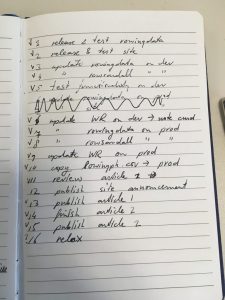 ✓ 1 release & test rowingdata
✓ 2 release & test site
✓ 3 update rowingdata on dev
✓ 4 " rowsandall " "
✓ 5 test functionality on dev
✓ 6 update WR on dev → note cmd
✓ 7 " rowingdata on prod
✓ 8 " rowsandall " "
✓ 9 update WR on prod
✓ 10 copy Rowingph csv → prod
✓ 11 review article 1
✓ 12 publish site announcement
✓ 13 publish article 1
✓ 14 finish article 2
✓ 15 publish article 2
✓ 16 relax